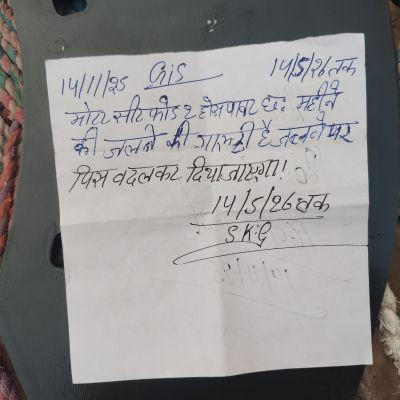 14/11/25 GiS 14/5/26 तक
मोटर सीट फोड 2 होसपावर छ: महीने
की जलने की गारन्टी है जलने पर
पिस बदलकर दिया जाएगा।
14/5/26 तक
S.K.G